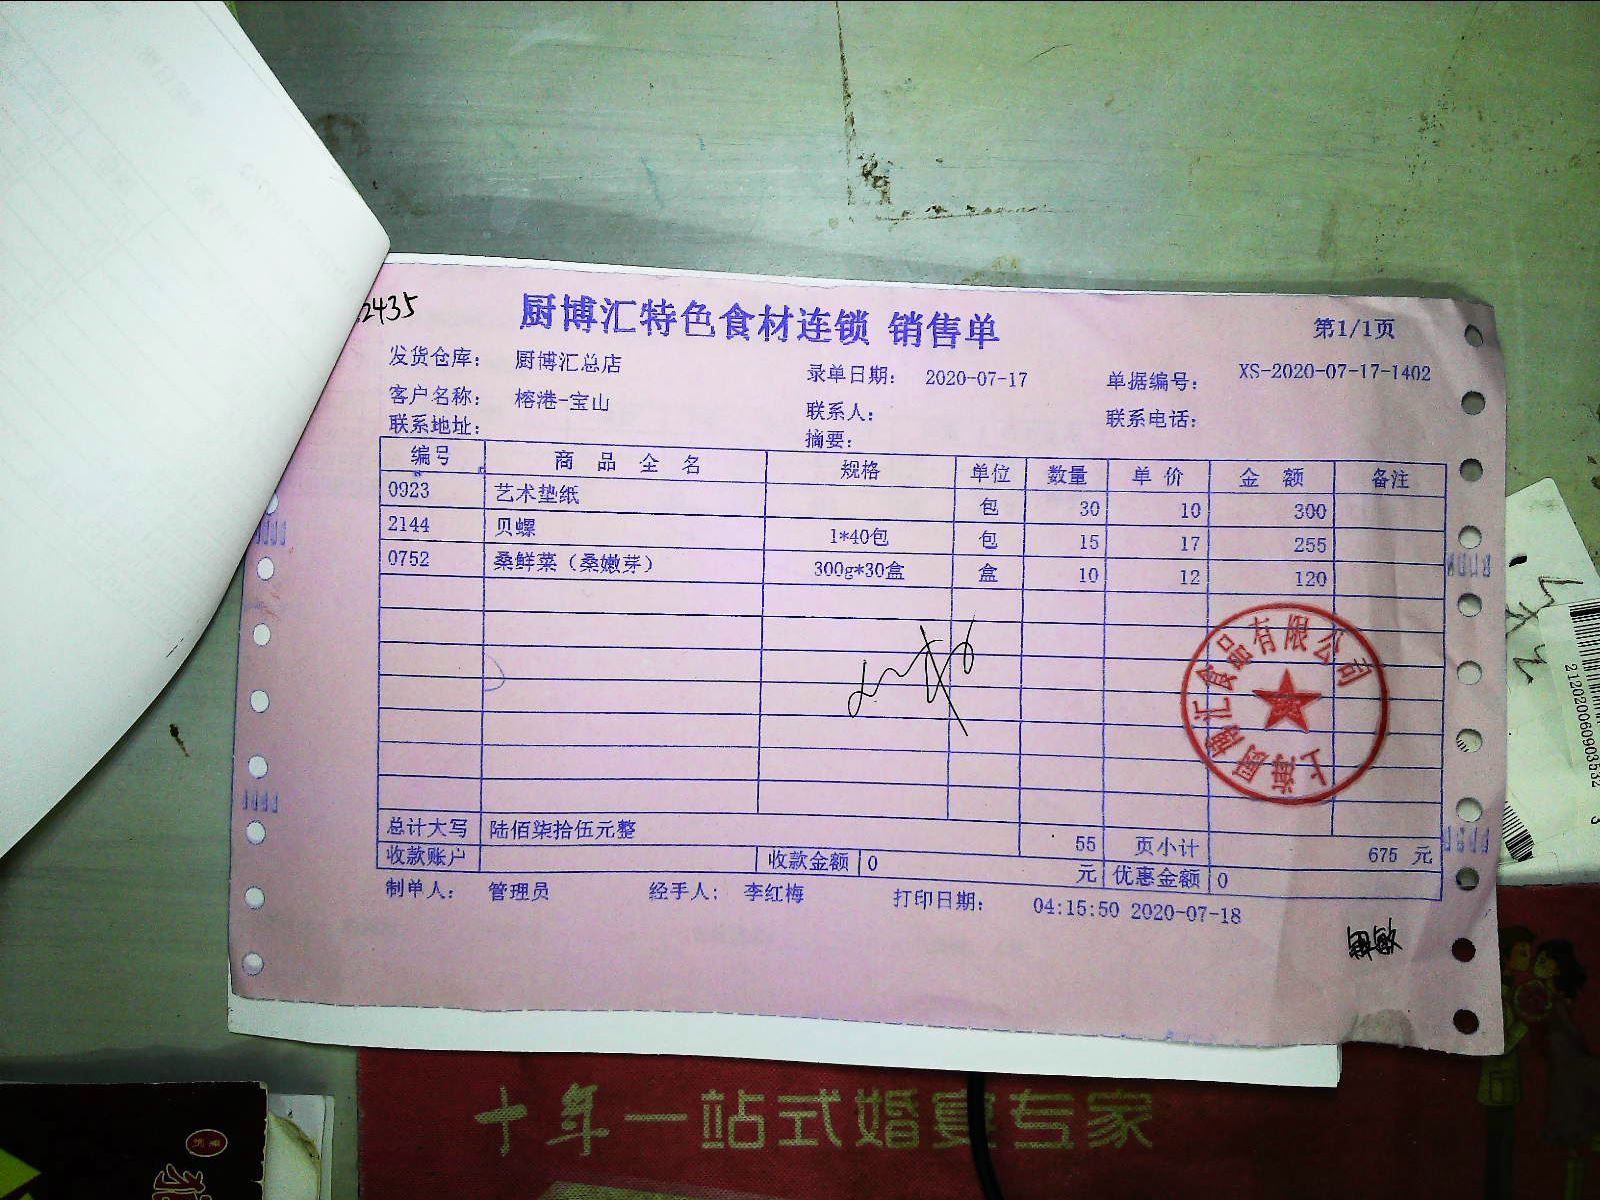 2435
厨博汇特色食材连锁 销售单
第1/1页
发货仓库： 厨博汇总店
录单日期： 2020-07-17
单据编号： XS-2020-07-17-1402
客户名称： 榕港-宝山
联系人：
联系电话：
联系地址：
摘要：
编号 商 品 全 名 规格 单位 数量 单 价 金 额 备注
0923 艺术垫纸 包 30 10 300
2144 贝螺 1*40包 包 15 17 255
0752 桑鲜菜（桑嫩芽） 300g*30盒 盒 10 12 120
上海厨博汇食品有限公司
总计大写 陆佰柒拾伍元整 55 页小计 675 元
收款账户 收款金额 0 元 优惠金额 0
制单人： 管理员 经手人： 李红梅 打印日期： 04:15:50 2020-07-18
十年一站式婚宴专家